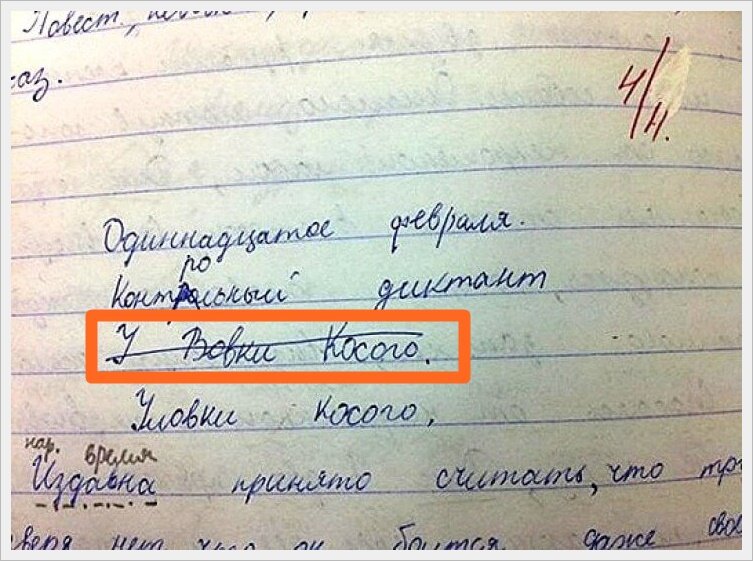 Повест.,
аз.
4/4.
Одиннадцатое февраля.
ро
Контрольный диктант
У Вовки Косого.
Уловки косого.
нар. время
Издавна принято считать, что тр
зверя нет, чего он боится даже сво